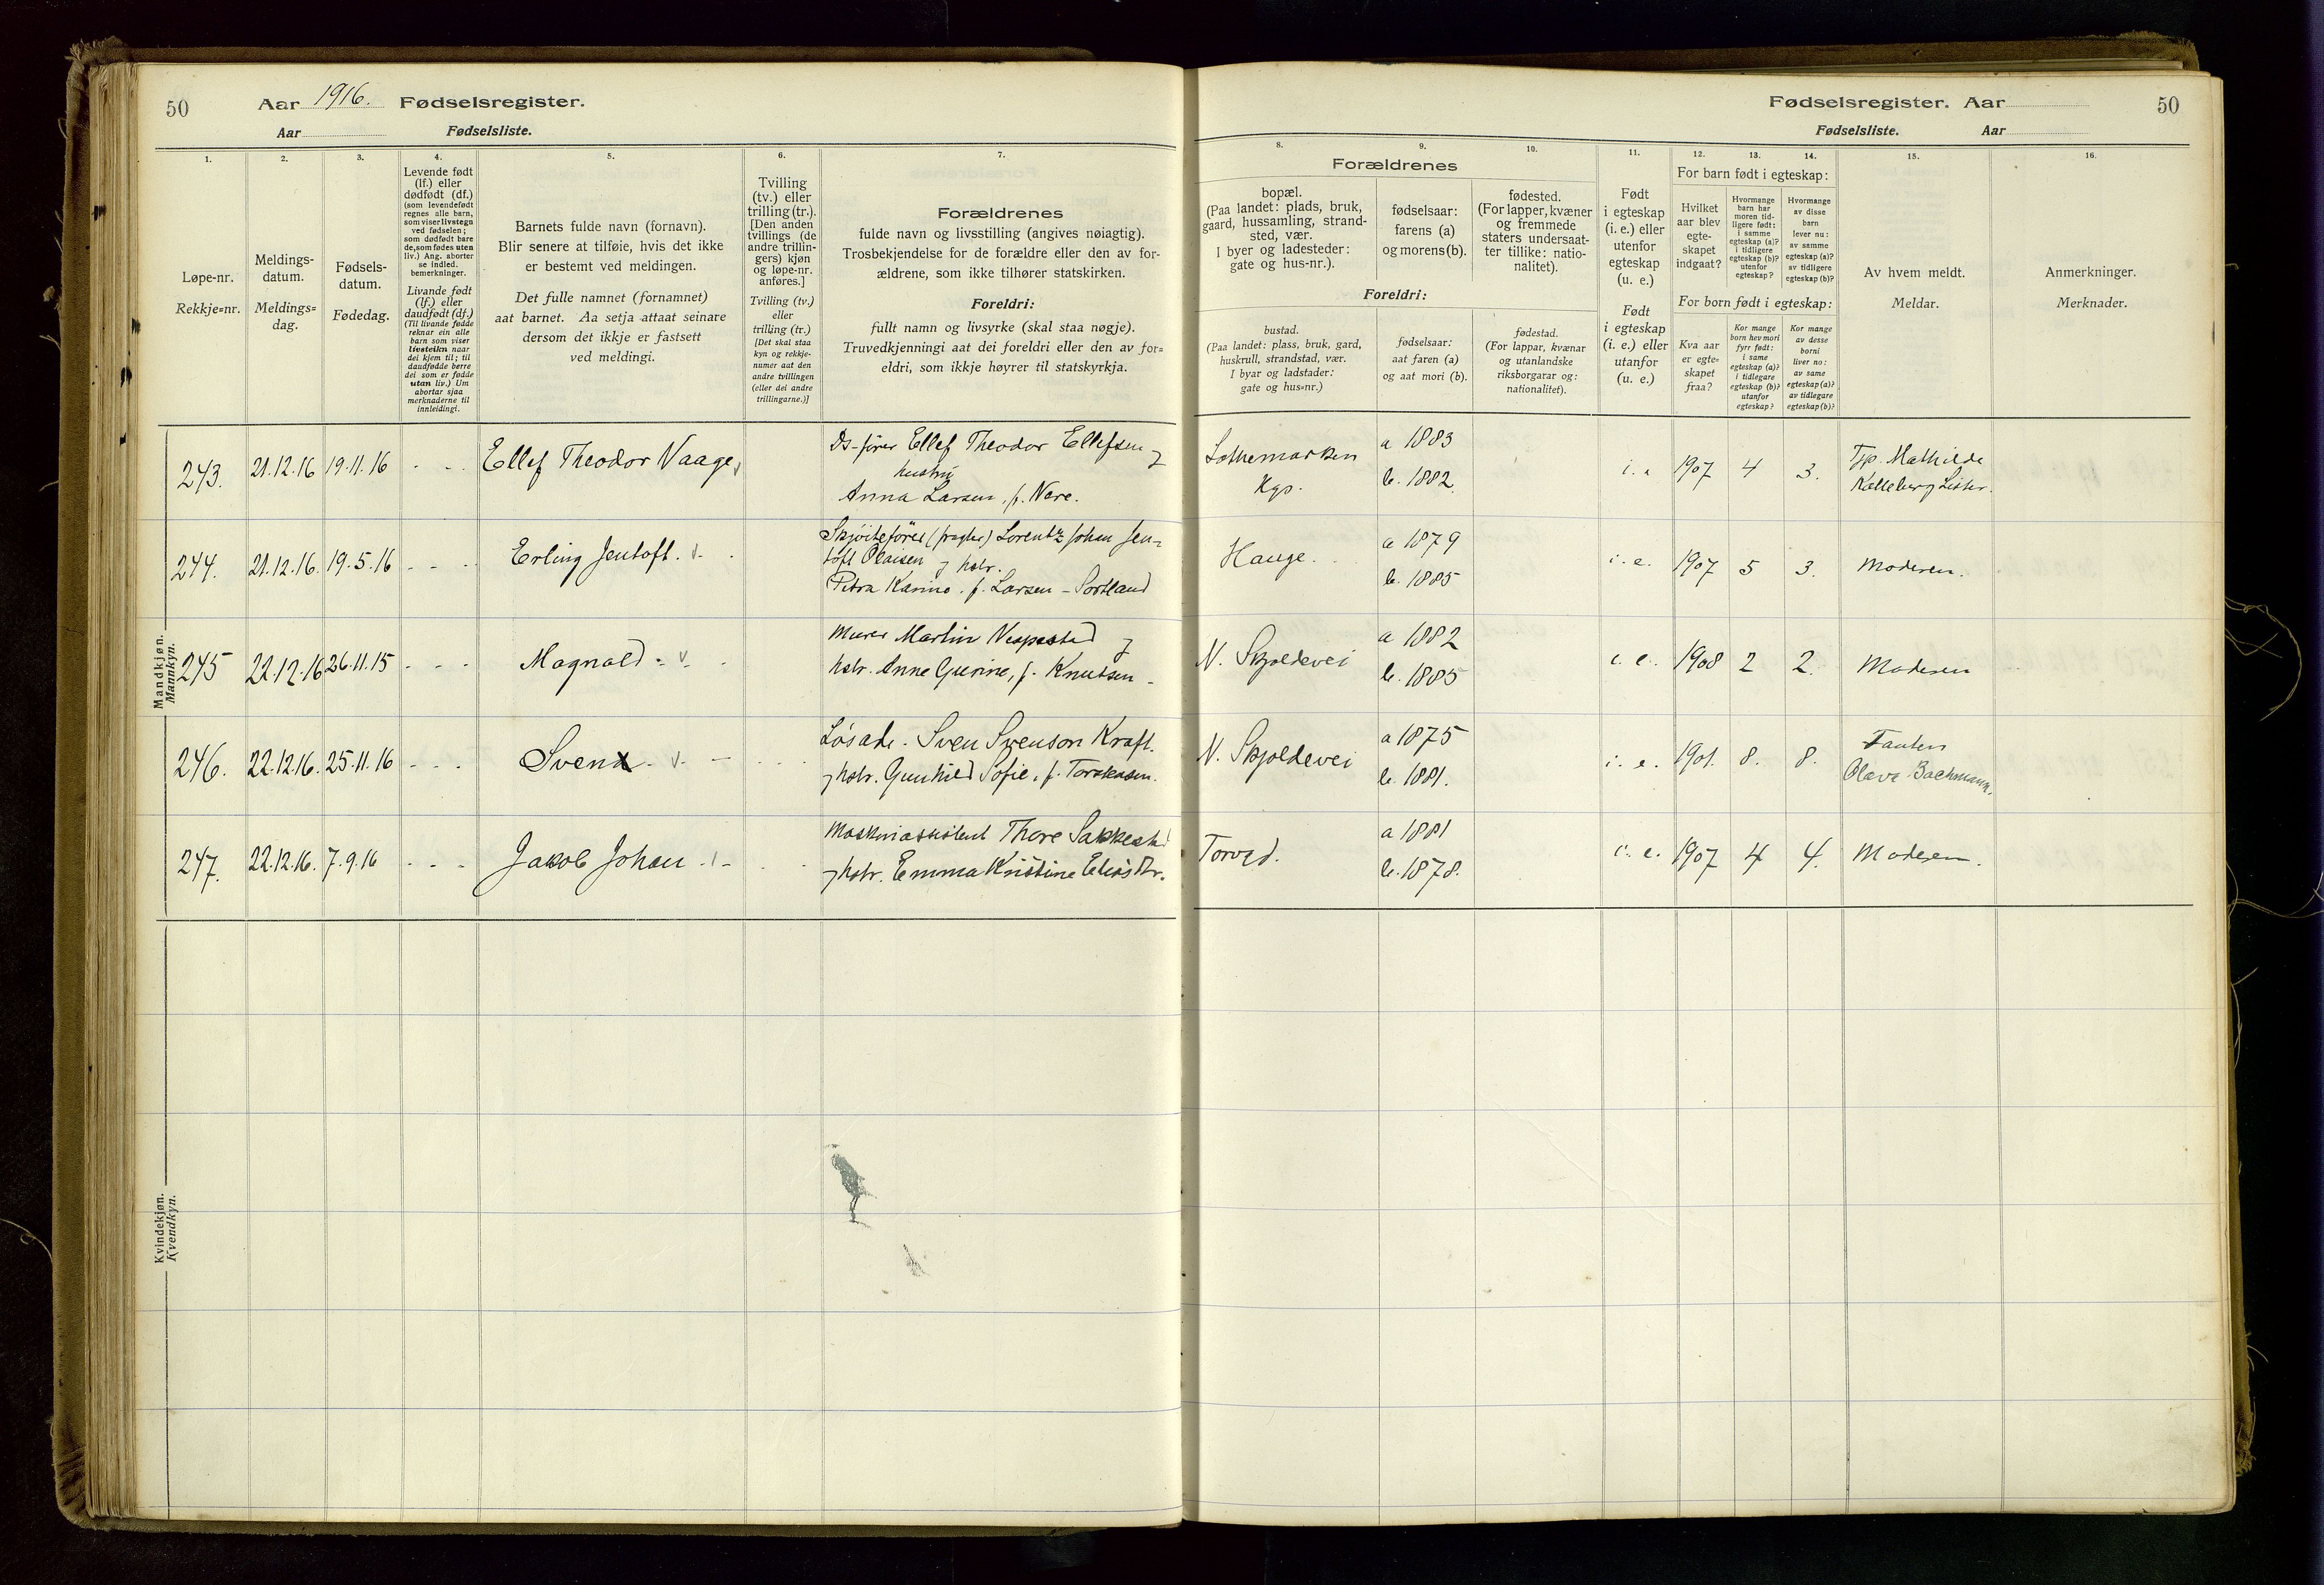 50
Aar 1916. Fødselsregister.
Aar Fødselsliste.
1.
2.
3.
4.
5.
6.
7.
Løpe-nr.
Rekkje=nr.
Meldings-
datum.
Meldings=
dag.
Fødsels-
datum.
Fødedag.
Levende født
(lf.) eller
dødfødt (df.)
(som levendefødt
regnes alle barn,
som viser livstegn
ved fødselen;
som dødfødt bare
de, som fødes uten
liv.) Ang. aborter
se indled.
bemerkninger.
Livande født
(lf.) eller
daudfødt (df.)
(Til livande fødde
reknar ein alle
barn som viser
livsteikn naar
dei kjem til; til
daudfødde berre
dei som er fødde
utan liv.) Um
abortar sjaa
merknaderne til
innleidingi.
Barnets fulde navn (fornavn).
Blir senere at tilføie, hvis det ikke
er bestemt ved meldingen.
Det fulle namnet (fornamnet)
aat barnet. Aa setja attaat seinare
dersom det ikkje er fastsett
ved meldingi.
Tvilling
(tv.) eller
trilling (tr.).
[Den anden
tvillings (de
andre trillin-
gers) kjøn
og løpe-nr.
anføres.]
Tvilling (tv.)
eller
trilling (tr.)
[Det skal staa
kyn og rekkje-
numer aat den
andre tvillingen
(eller dei andre
trillingarne.)]
Forældrenes
fulde navn og livsstilling (angives nøiagtig).
Trosbekjendelse for de forældre eller den av for-
ældrene, som ikke tilhører statskirken.
Foreldri:
fullt namn og livsyrke (skal staa nøgje).
Truvedkjenningi aat dei foreldri eller den av for=
eldri, som ikkje høyrer til statskyrkja.
Mandkjøn.
Mannkyn.
243. 21.12.16 19.11.16 - - Ellef Theodor Vaage
Ds-fører Ellef Theodor Ellefsen og
hustru
Anna Larsen, f. Nore.
244. 21.12.16. 19.5.16 - - - Erling Jentoft. v.
Skjøitefører (fragter) Lorentz Johan Jen=
toft Olaisen og hstr.
Petra Karine. f. Larsen - Sortland
245 22.12.16 26.11.15 - - - Magnald - v.
Murer Martin
og
hstr. Anne Gurine, f. Knutsen -
246. 22.12.16. 25.11.16 - - - Sven v.
Løsarb. Sven Svenson Kraft.
og hstr. Gunhild Sofie, f.
247. 22.12.16. 7.9.16 - - - Jakob Johan
Maskinassistent Thore Sakkestad
og hstr. Emma Kristine Eliasdtr.
Kvindekjøn.
Kvendkyn.
Fødselsregister. Aar
50
Fødselsliste. Aar
8.
9.
10.
11.
12.
13.
14.
15.
16.
Forældrenes
bopæl.
(Paa landet: plads, bruk,
gaard, hussamling, strand-
sted, vær.
I byer og ladesteder:
gate og hus-nr.).
fødselsaar:
farens (a)
og morens (b).
fødested.
(For lapper, kvæner
og fremmede
staters undersaat-
ter tillike: natio-
nalitet).
Foreldri:
bustad.
(Paa landet: plass, bruk, gard,
huskrull, strandstad, vær.
I byar og ladstader:
gate og hus=nr.)
fødselsaar:
aat faren (a)
og aat mori (b).
fødestad.
(For lappar, kvænar
og utanlandske
riksborgarar og:
nationalitet).
Født
i egteskap
(i. e.) eller
utenfor
egteskap
(u. e.)
Født
i egteskap
(i. e.) eller
utanfor
(u. e.)
For barn født i egteskap:
Hvilket
aar blev
egte-
skapet
indgaat?
Hvormange
barn har
moren tid-
ligere født:
i samme
egteskap (a)?
i tidligere
egteskap (b)?
utenfor
egteskap?
Hvormange
av disse
barn
lever nu:
av samme
egteskap (a)?
av tidligere
egteskap (b)?
For born født i egteskap:
Kva aar
er egte=
skapet
fraa?
Kor mange
born hev mori
fyrr født:
i same
egteskap (a)?
i tidlegare
egteskap (b)?
utanfor
egteskap?
Kor mange
av desse
borni
liver no:
av same
egteskap (a)?
av tidlegare
egteskap (b)?
Av hvem meldt.
Meldar.
Anmerkninger.
Merknader.
Lothemarken
Kgs.
a 1883
b. 1882.
i. e. 1907 4 3.
Tjp. Mathilde
Kalleberg Lister.
Hauge.
a 1879
b. 1885
i. e. 1907 5 3. Moderen.
N. Skjoldevei
a 1882
b. 1885
i. e. 1908 2 2. Moderen
N. Skjoldevei
a 1875
b. 1881.
i. e. 1901. 8. 8.
Tanten
Olava Bachmann.
Torved.
a 1881
b. 1878.
i. e. 1907 4 4. Moderen.